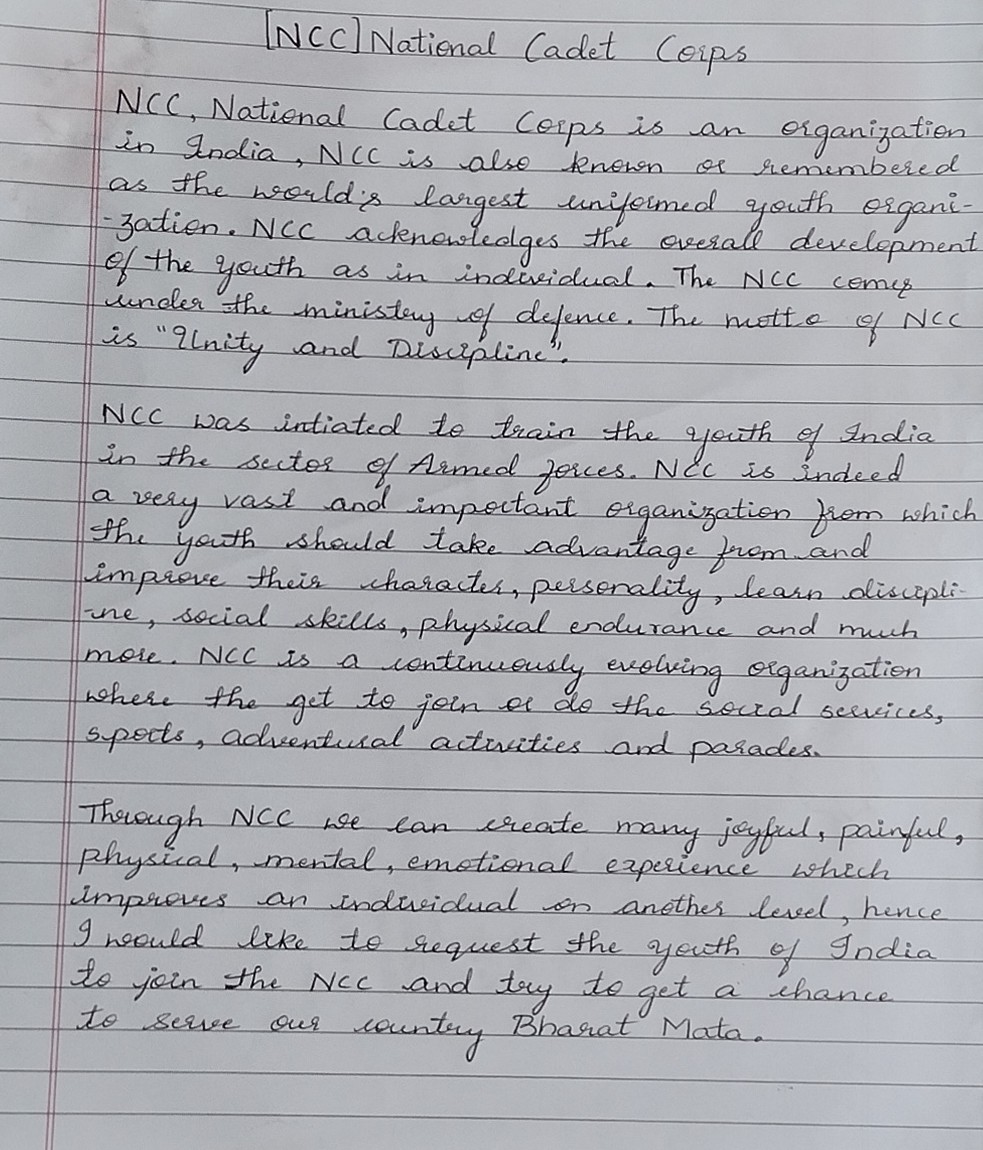 [NCC] National Cadet Corps
NCC, National Cadet Corps is an organization
in India, NCC is also known or remembered
as the would's largest uniformed youth organi-
-zation. NCC acknowledges the overall development
of the youth as in individual. The NCC comes
under the ministery of defence. The motto of NCC
is "Unity and Discipline".
NCC was intiated to train the youth of India
in the sector of Armed forces. NCC is indeed
a very vast and important organization from which
the youth should take advantage from and
improve their character, personality, learn discipli-
-ine, social skills, physical endurance and much
more. NCC is a continuously evolving organization
where the get to join or do the social services,
sports, adventural activities and parades.
Through NCC we can create many joyful, painful,
physical, mental, emotional experience which
improves an individual on another level, hence
I would like to request the youth of India
to join the NCC and try to get a chance
to serve our country Bharat Mata.